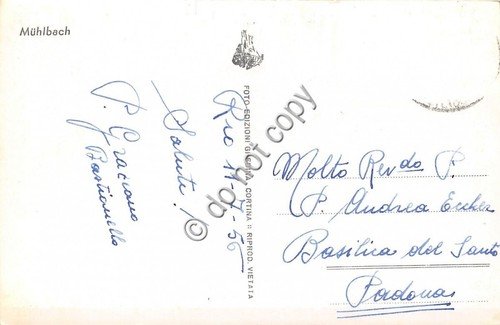 Mühlbach
Saluti!
P. Graziano
Bastianello
Rio 11-7-56
FOTO EDIZIONI GHEDINA - CORTINA - RIPROD. VIETATA
© do not copy
Molto Rev.do P.
P. Andrea Eccher
Basilica del Santo
Padova